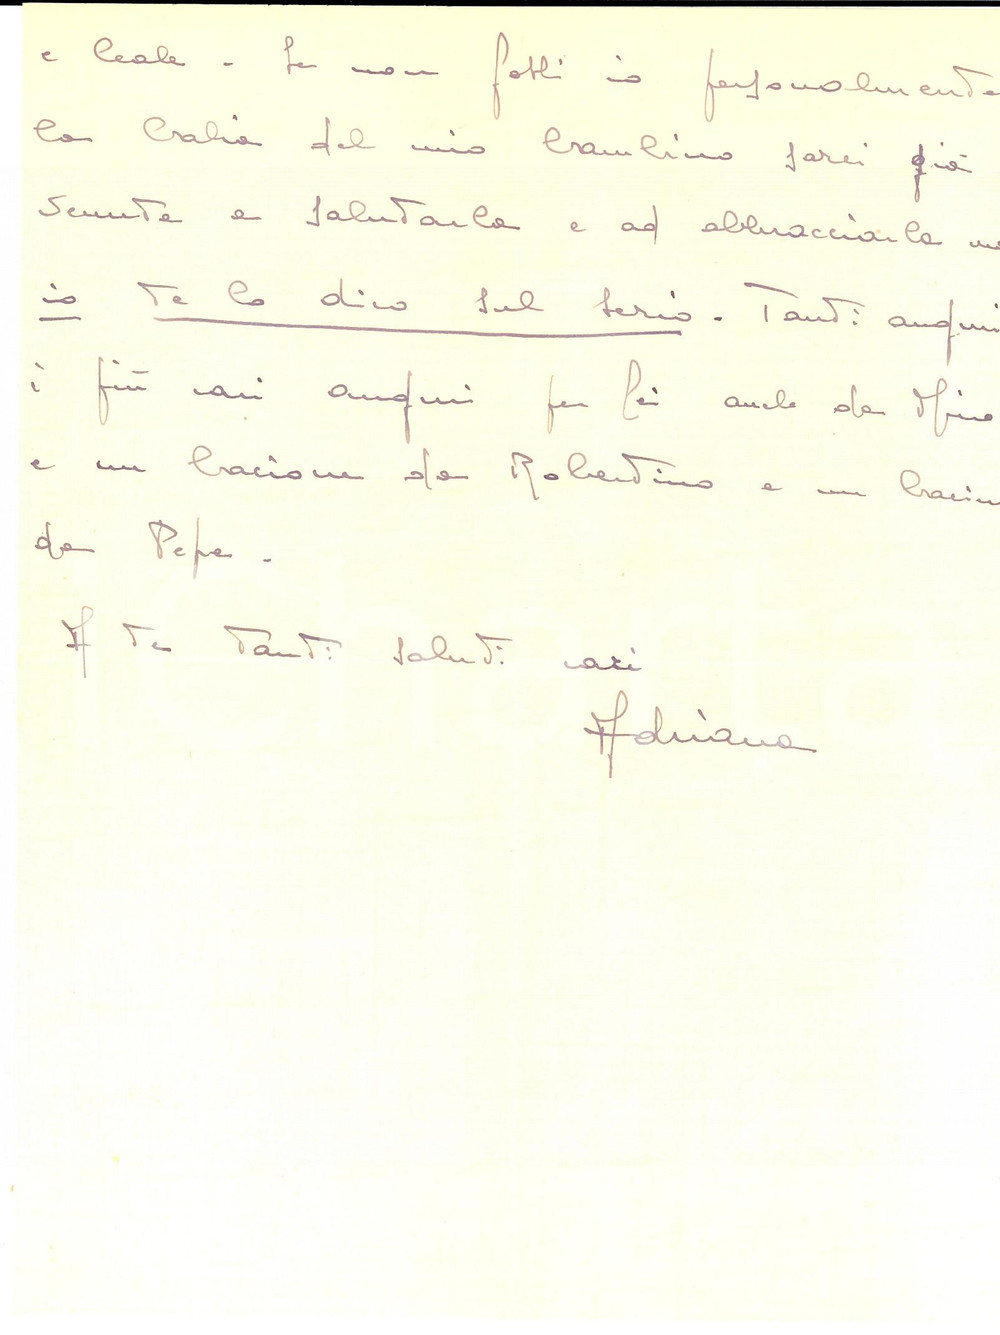 e leale - Se non fossi io personalmente
la balia del mio bambino sarei già
venuta a salutarla e ad abbracciarla ma
io te lo dico sul serio. Tanti auguri
i più cari auguri per Lei anche da Nino
e un bacione da Robertino e un bacino
da Pepe.
A te tanti saluti cari
Adriana